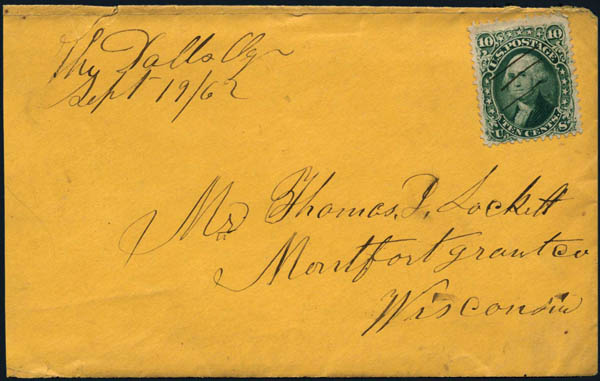 The Dalls Ogn
Sept 19/62
10 U.S. POSTAGE 10
TEN CENTS
U S
Mr Thomas. J. Lockett
Montfort grant co
Wisconsin